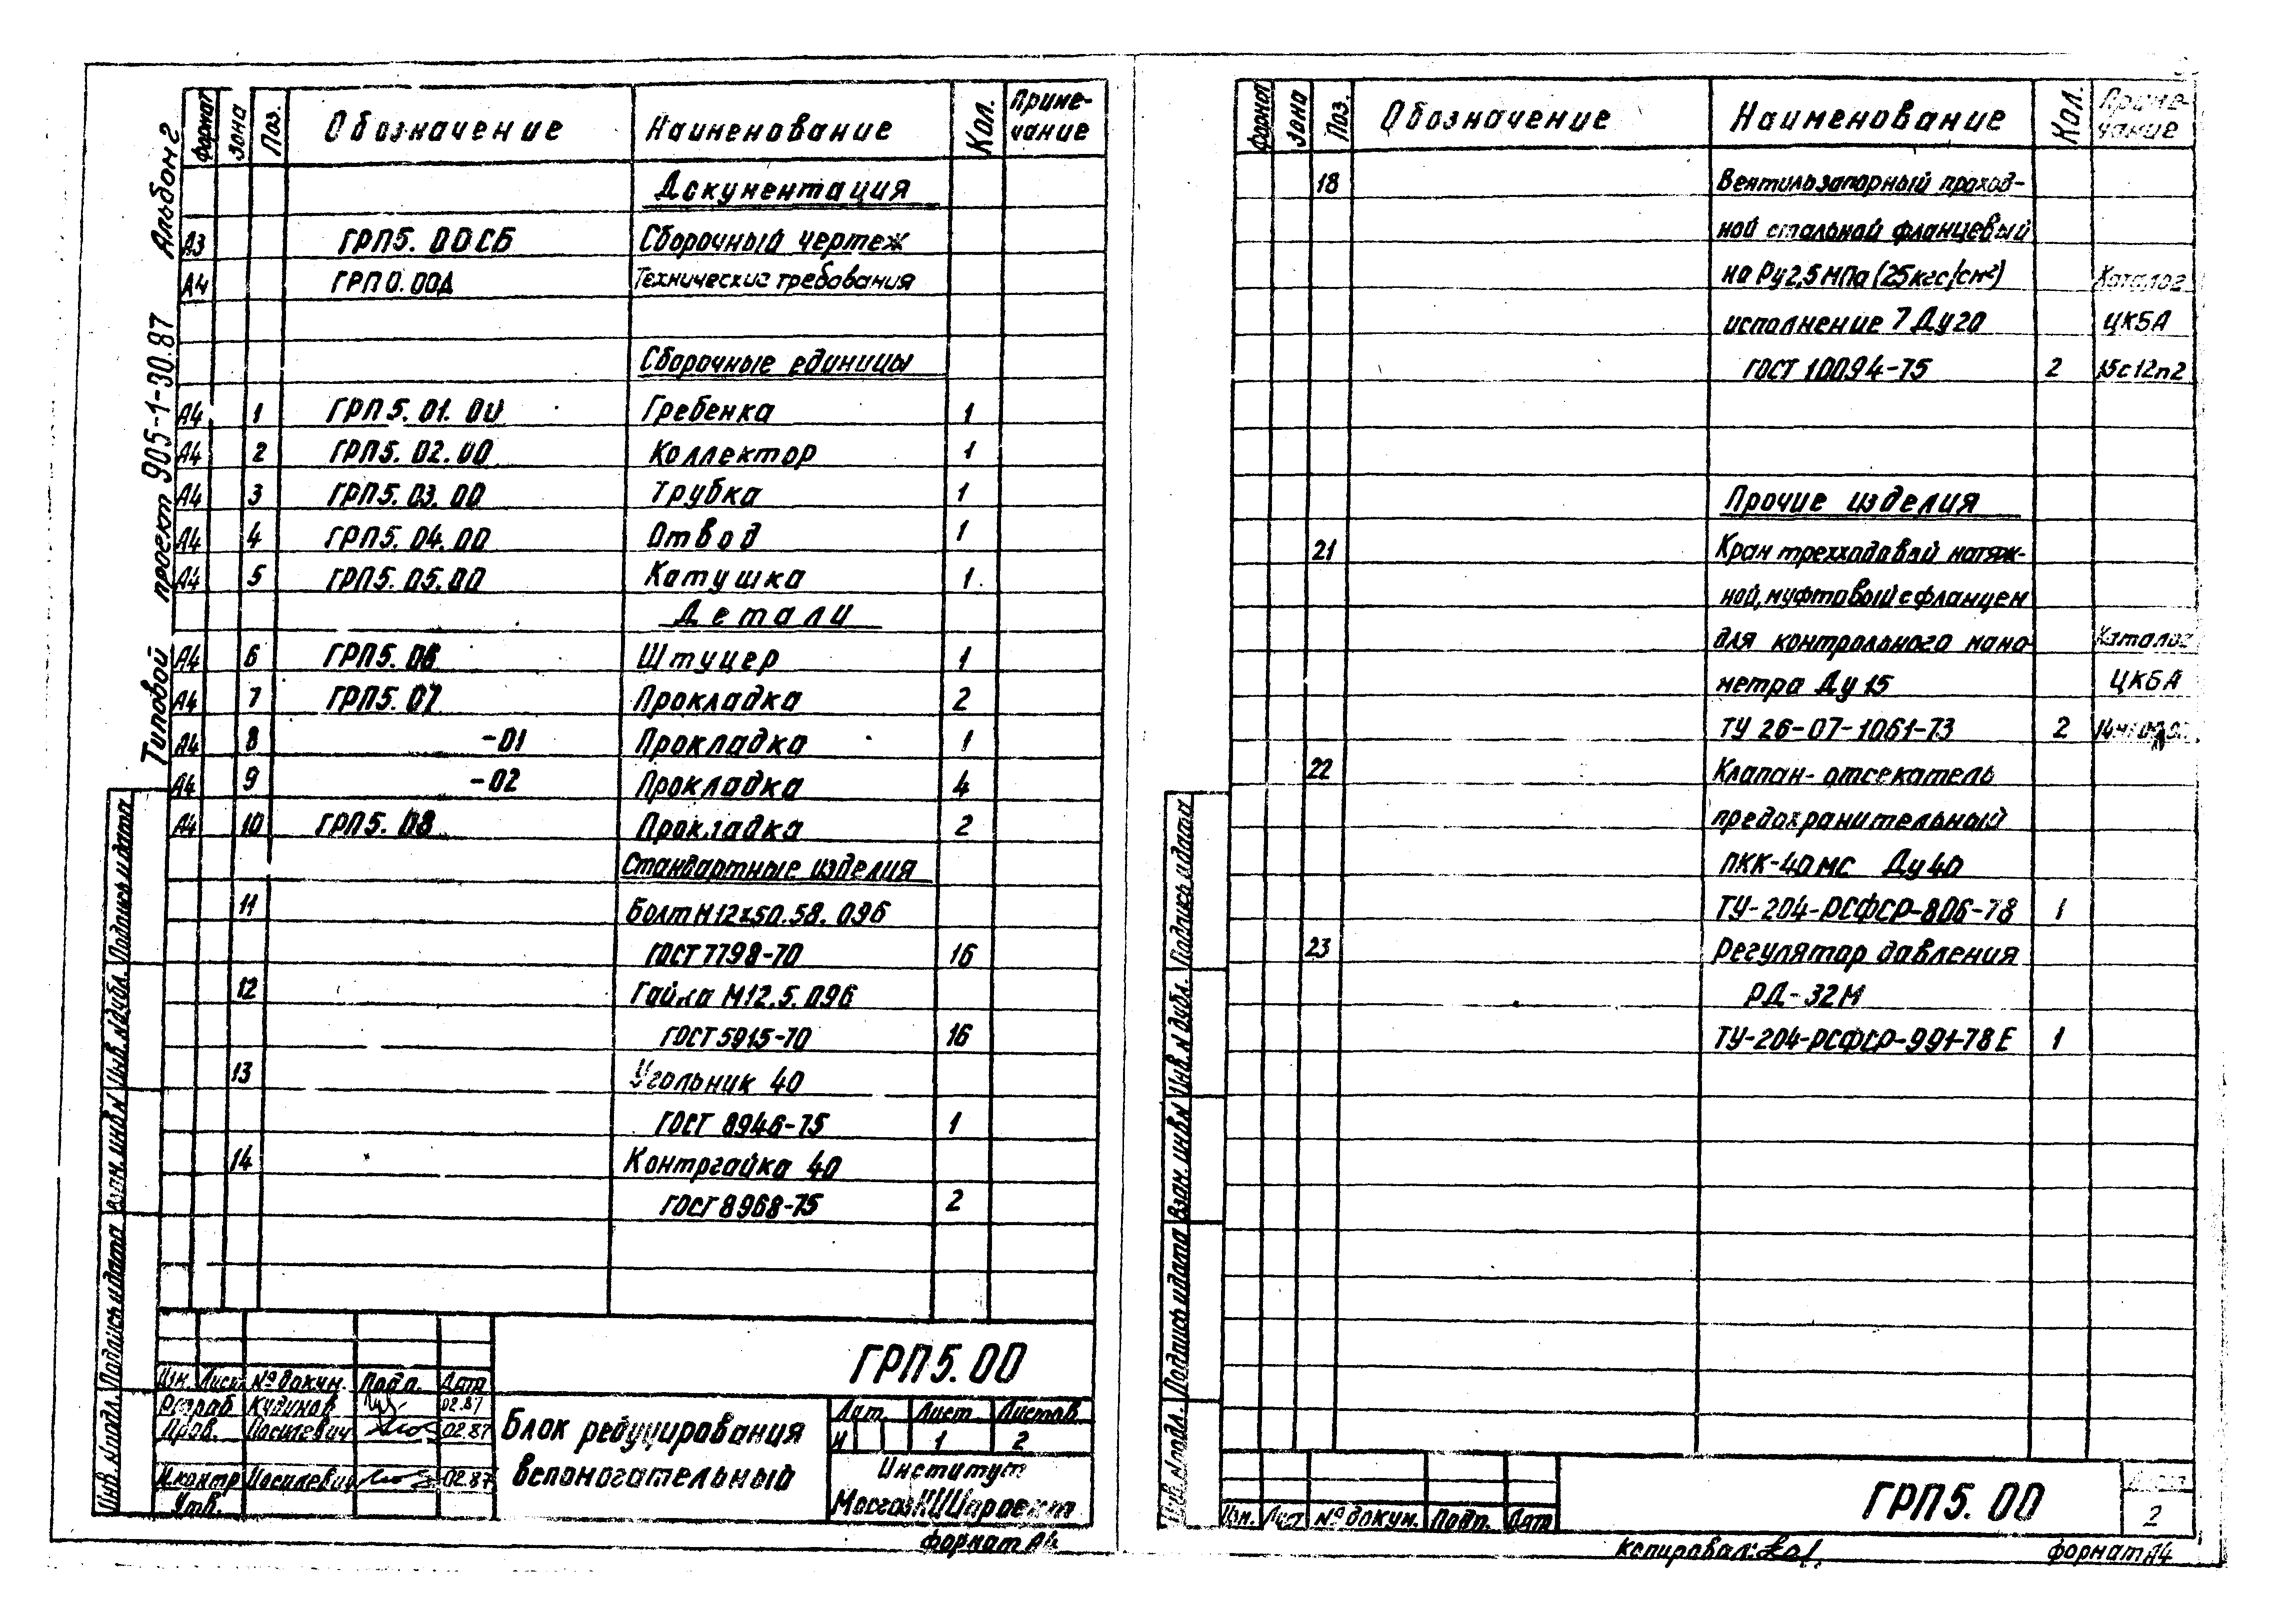 Типовой проект 905-1-30.87 Альбом 2
Формат Зона Поз. Обозначение Наименование Кол. Приме-
чание
Документация
А3 ГРП5.00СБ Сборочный чертеж
А4 ГРП0.00Д Технические требования
Сборочные единицы
А4 1 ГРП5.01.00 Гребенка 1
А4 2 ГРП5.02.00 Коллектор 1
А4 3 ГРП5.03.00 Трубка 1
А4 4 ГРП5.04.00 Отвод 1
А4 5 ГРП5.05.00 Катушка 1
Детали
А4 6 ГРП5.06 Штуцер 1
А4 7 ГРП5.07 Прокладка 2
А4 8 -01 Прокладка 1
А4 9 -02 Прокладка 4
А4 10 ГРП5.08 Прокладка 2
Стандартные изделия
11 Болт М12х50.58.096
ГОСТ 7798-70 16
12 Гайка М12.5.096
ГОСТ 5915-70 16
13 Угольник 40
ГОСТ 8946-75 1
14 Контргайка 40
ГОСТ 8968-75 2
Инв. № подл. Подпись и дата Взам. инв № Инв. № дубл. Подпись и дата
ГРП5.00
Изм. Лист № докум. Подп. Дата
Разраб Кудинов 02.87
Пров. Иосилевич 02.87
Н.контр Иосилевич 02.87
Утв.
Блок редуцирования
вспомогательный
Лит. Лист Листов
И 1 2
Институт
МосгазНИИпроект
формат А4
Формат Зона Поз. Обозначение Наименование Кол. Приме-
чание
18 Вентиль запорный проход-
ной стальной фланцевый
на Ру2,5 МПа (25 кгс/см²) Каталог
исполнение 7 Ду20 ЦКБА
ГОСТ 10094-75 2 15с12п2
Прочие изделия
21 Кран трехходовой натяж-
ной, муфтовый с фланцем
для контрольного мано- Каталог
метра Ду 15 ЦКБА
ТУ 26-07-1061-73 2
22 Клапан-отсекатель
предохранительный
ПКК-40МС Ду40
ТУ-204-РСФСР-806-78 1
23 Регулятор давления
РД-32М
ТУ-204-РСФСР-991-78Е 1
Инв. № подл. Подпись и дата Взам. инв № Инв. № дубл. Подпись и дата
Изм. Лист № докум. Подп. Дата
ГРП5.00
Лист
2
Копировал:
формат А4